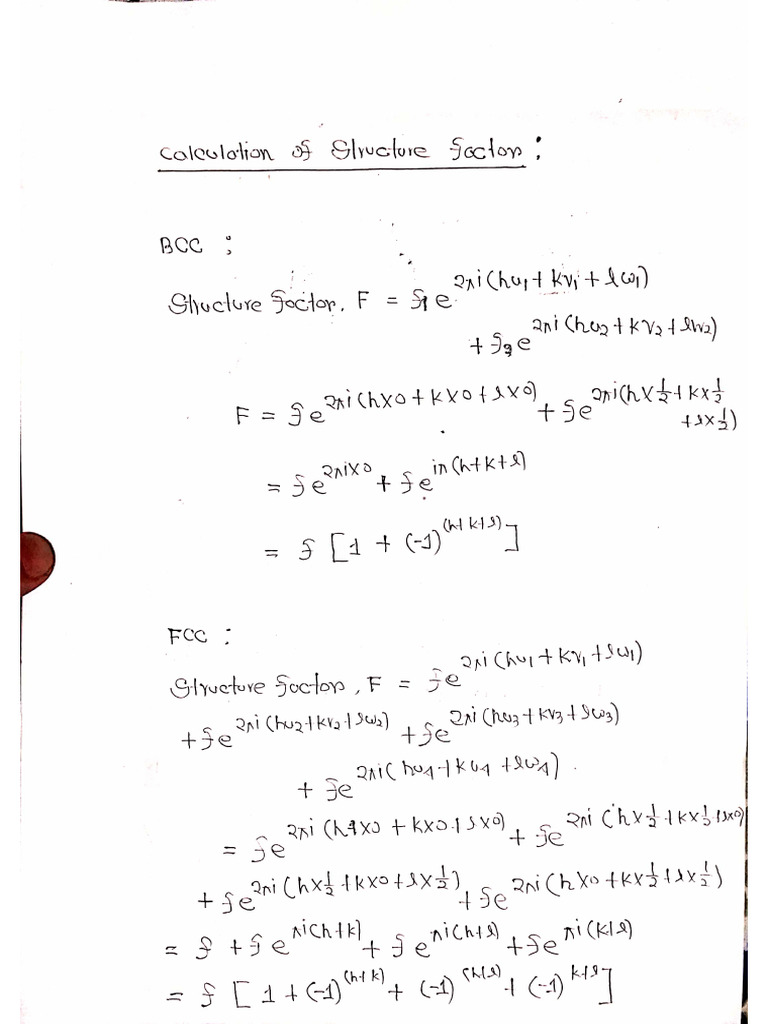 Calculation of Structure factor:
BCC :
Structure factor, F = f₁e^{2πi(hu₁ + kv₁ + lw₁)}
+ f₂e^{2πi(hu₂ + kv₂ + lw₂)}
F = fe^{2πi(h×0 + k×0 + l×0)} + fe^{2πi(h×½ + k×½ + l×½)}
= fe^{2πi×0} + fe^{iπ(h+k+l)}
= f [1 + (-1)^{(h+k+l)}]
FCC :
Structure factor, F = fe^{2πi(hu₁ + kv₁ + lw₁)}
+ fe^{2πi(hu₂ + kv₂ + lw₂)} + fe^{2πi(hu₃ + kv₃ + lw₃)}
+ fe^{2πi(hu₄ + kv₄ + lw₄)}.
= fe^{2πi(h×0 + k×0 + l×0)} + fe^{2πi(h×½ + k×½ + l×0)}
+ fe^{2πi(h×½ + k×0 + l×½)} + fe^{2πi(h×0 + k×½ + l×½)}
= f + fe^{πi(h+k)} + fe^{πi(h+l)} + fe^{πi(k+l)}
= f [1 + (-1)^{(h+k)} + (-1)^{(h+l)} + (-1)^{k+l}]